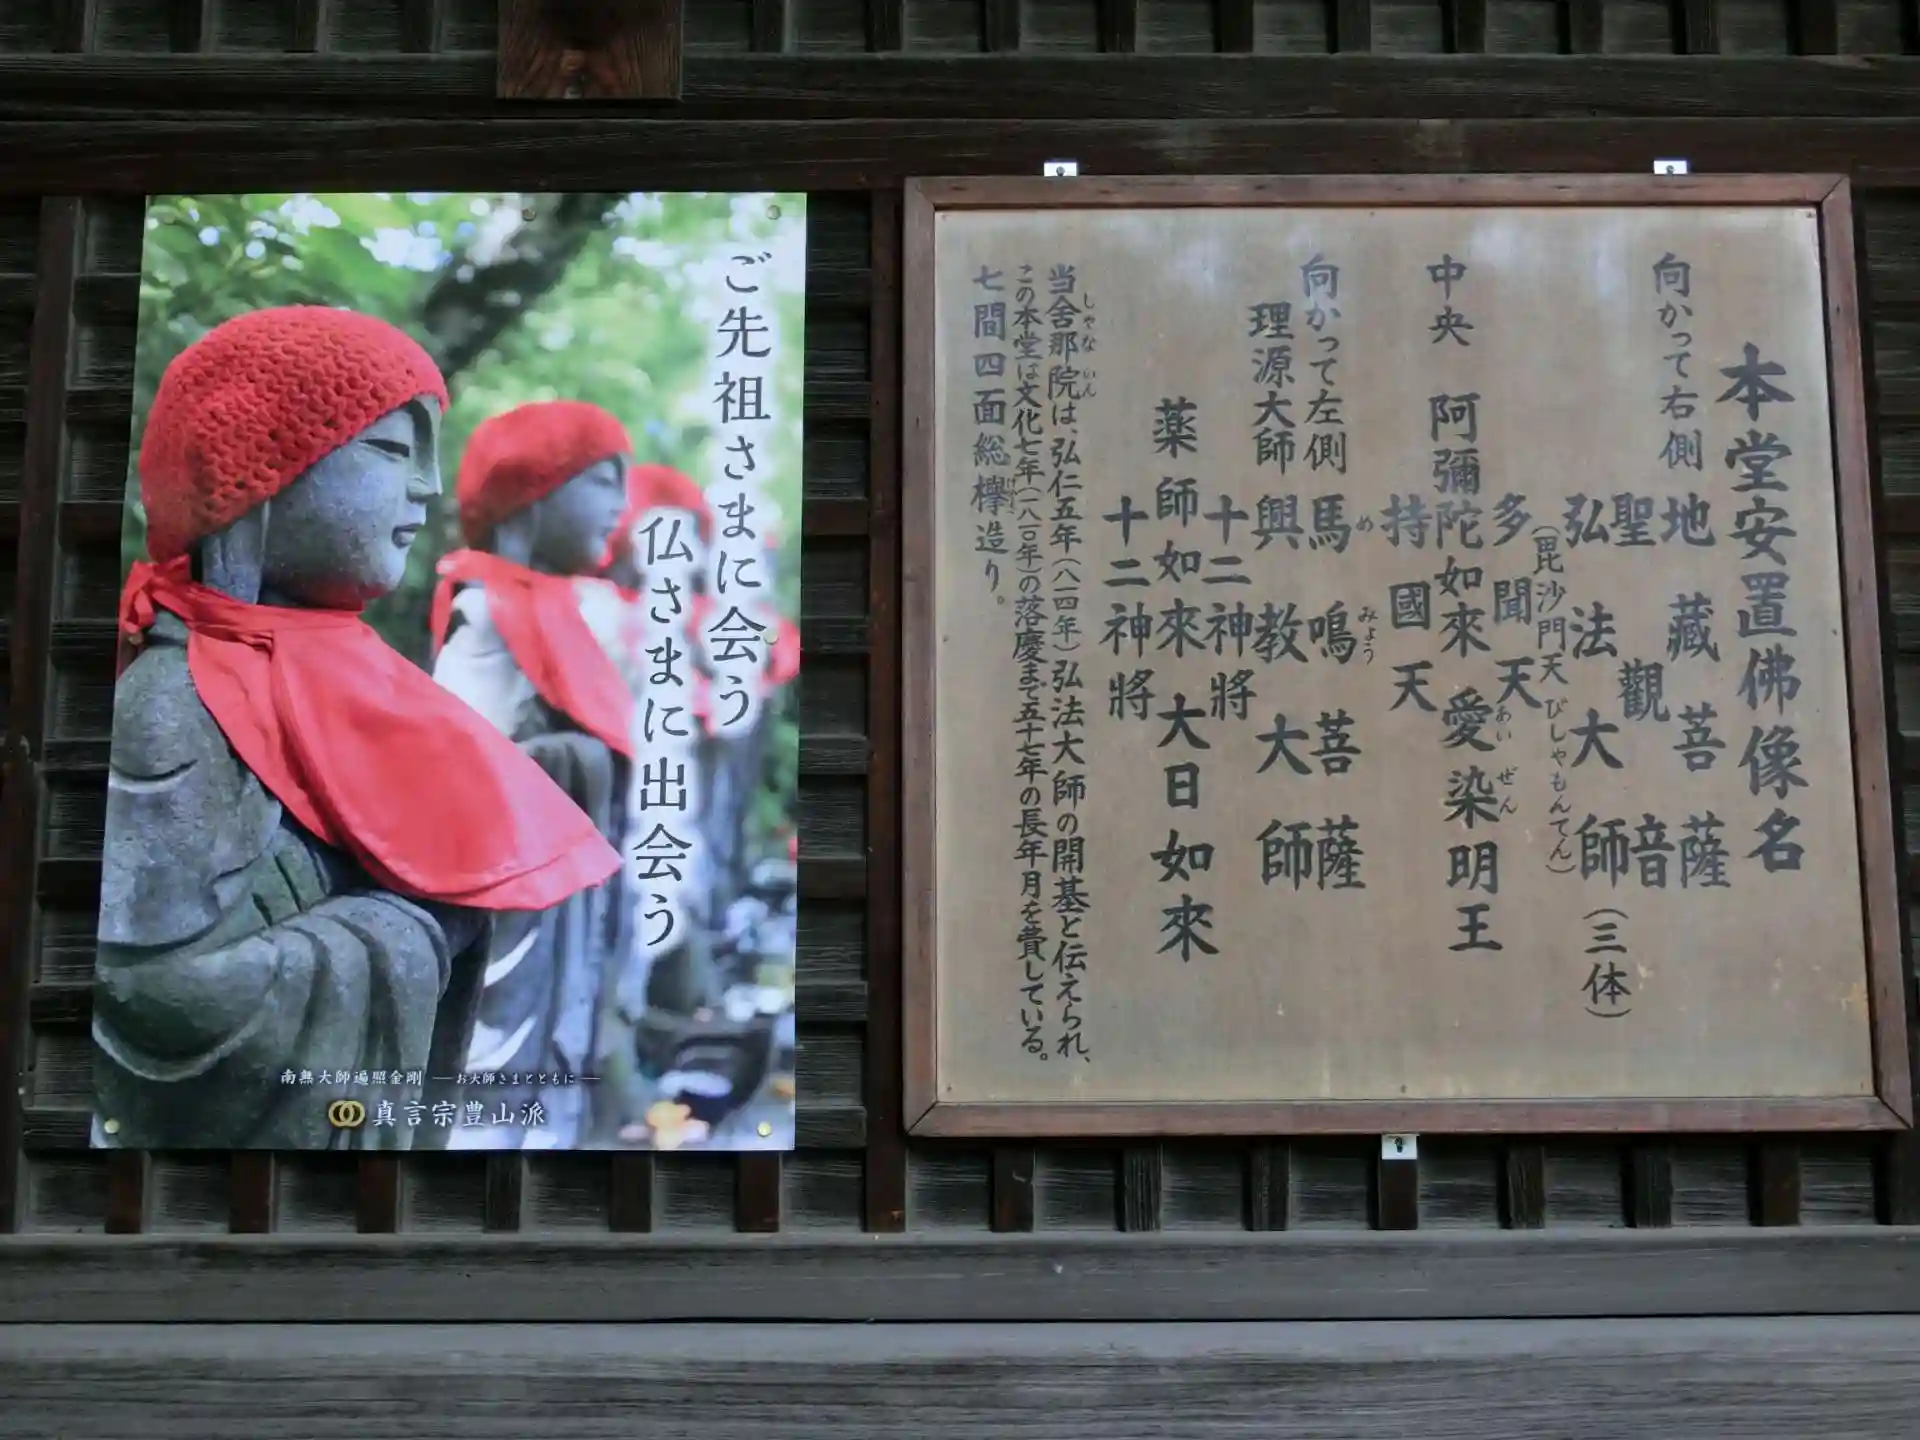 ご先祖さまに会う
仏さまに出会う
南無大師遍照金剛 ―お大師さまとともに―
真言宗豊山派
本堂安置佛像名
向かって右側
地藏菩薩
聖觀音
弘法大師(三体)
(毘沙門天 びしゃもんてん)
多聞天
中央
阿彌陀如來
愛染明王
あいぜん
持國天
向かって左側
馬鳴菩薩
めみょう
理源大師
興教大師
十二神將
薬師如來
大日如來
十二神將
しゃないん
当舍那院は、弘仁五年(八一四年)弘法大師の開基と伝えられ、
この本堂は文化七年(一八一〇年)の落慶まで五十七年の長年月を費している。
七間四面総欅造り。
けやき